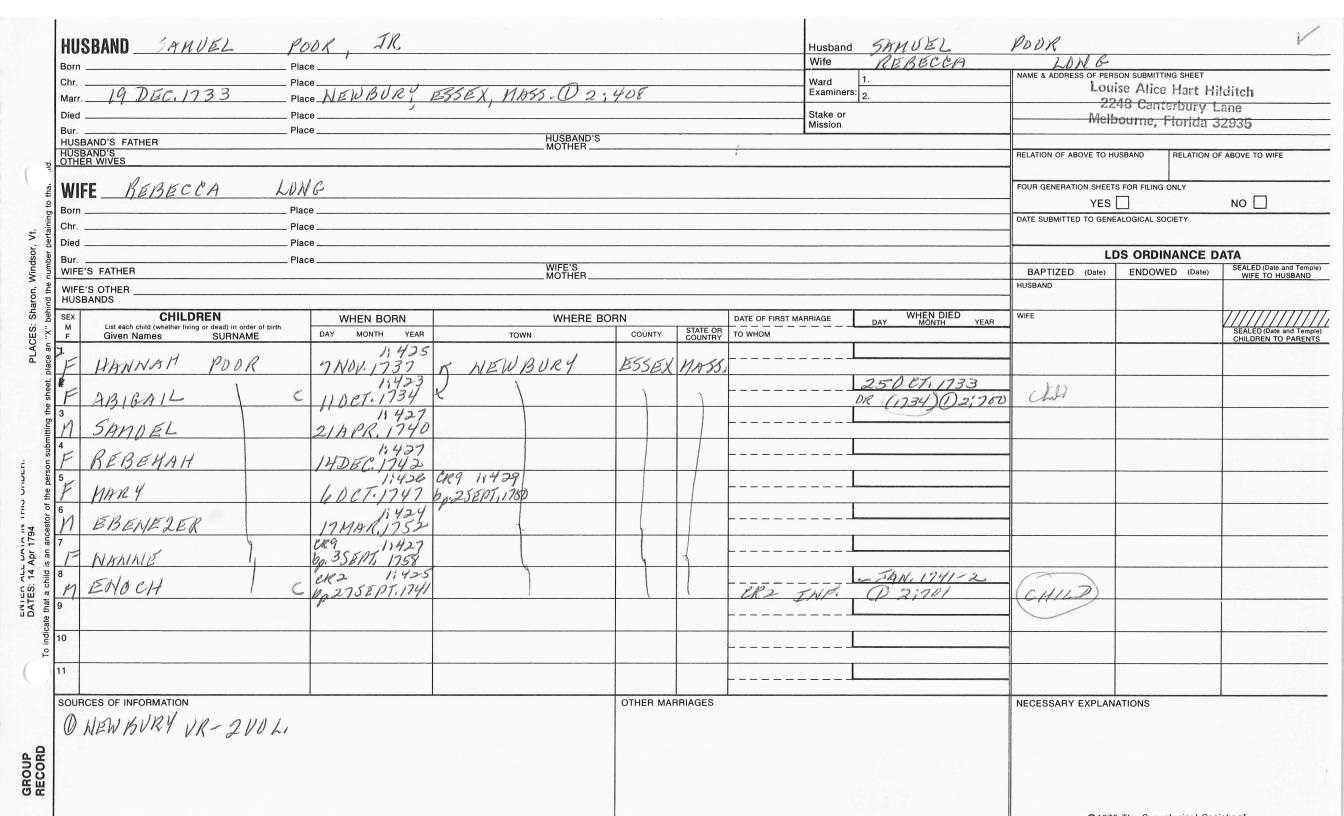 HUSBAND SAMUEL POOR, JR.
Born Place
Chr. Place
Marr. 19 DEC. 1733 Place NEWBURY, ESSEX, MASS. ① 2:408
Died Place
Bur. Place
HUSBAND'S FATHER HUSBAND'S MOTHER
HUSBAND'S OTHER WIVES
WIFE REBECCA LONG
Born Place
Chr. Place
Died Place
Bur. Place
WIFE'S FATHER WIFE'S MOTHER
WIFE'S OTHER HUSBANDS
Husband SAMUEL POOR
Wife REBECCA LONG
Ward Examiners: 1.
2.
Stake or Mission
NAME & ADDRESS OF PERSON SUBMITTING SHEET
Louise Alice Hart Hilditch
2248 Canterbury Lane
Melbourne, Florida 32935
RELATION OF ABOVE TO HUSBAND RELATION OF ABOVE TO WIFE
FOUR GENERATION SHEETS FOR FILING ONLY
YES NO
DATE SUBMITTED TO GENEALOGICAL SOCIETY
LDS ORDINANCE DATA
BAPTIZED (Date) ENDOWED (Date) SEALED (Date and Temple) WIFE TO HUSBAND
HUSBAND
WIFE
SEALED (Date and Temple) CHILDREN TO PARENTS
SEX M F
CHILDREN
List each child (whether living or dead) in order of birth
Given Names SURNAME
WHEN BORN
DAY MONTH YEAR
WHERE BORN
TOWN COUNTY STATE OR COUNTRY
DATE OF FIRST MARRIAGE
TO WHOM
WHEN DIED
DAY MONTH YEAR
1:425
F HANNAH POOR 7 NOV. 1737 NEWBURY ESSEX MASS.
1:423 25 OCT. 1733
F ABIGAIL C 11 OCT. 1734 OR (1734) ① 2:700 Child
3 1:427
M SAMUEL 21 APR. 1740
4 1:427
F REBEKAH 14 DEC. 1742
5 1:426 CR9 1:429
F MARY 6 OCT. 1747 bp. 2 SEPT. 1750
6 1:424
M EBENEZER 17 MAR. 1752
7 CR9 1:427
F NANNE bp. 3 SEPT. 1758
8 CR2 1:425 – JAN. 1741-2
M ENOCH C bp 27 SEPT. 1741 CR2 INF. ① 2:701 CHILD
9
10
11
SOURCES OF INFORMATION
① NEWBURY VR-2VOL.
OTHER MARRIAGES
NECESSARY EXPLANATIONS
DATES: 14 Apr 1794
PLACES: Sharon, Windsor, Vt.
To indicate that a child is an ancestor of the person submitting the sheet, place an "X" behind the number pertaining to that
GROUP RECORD